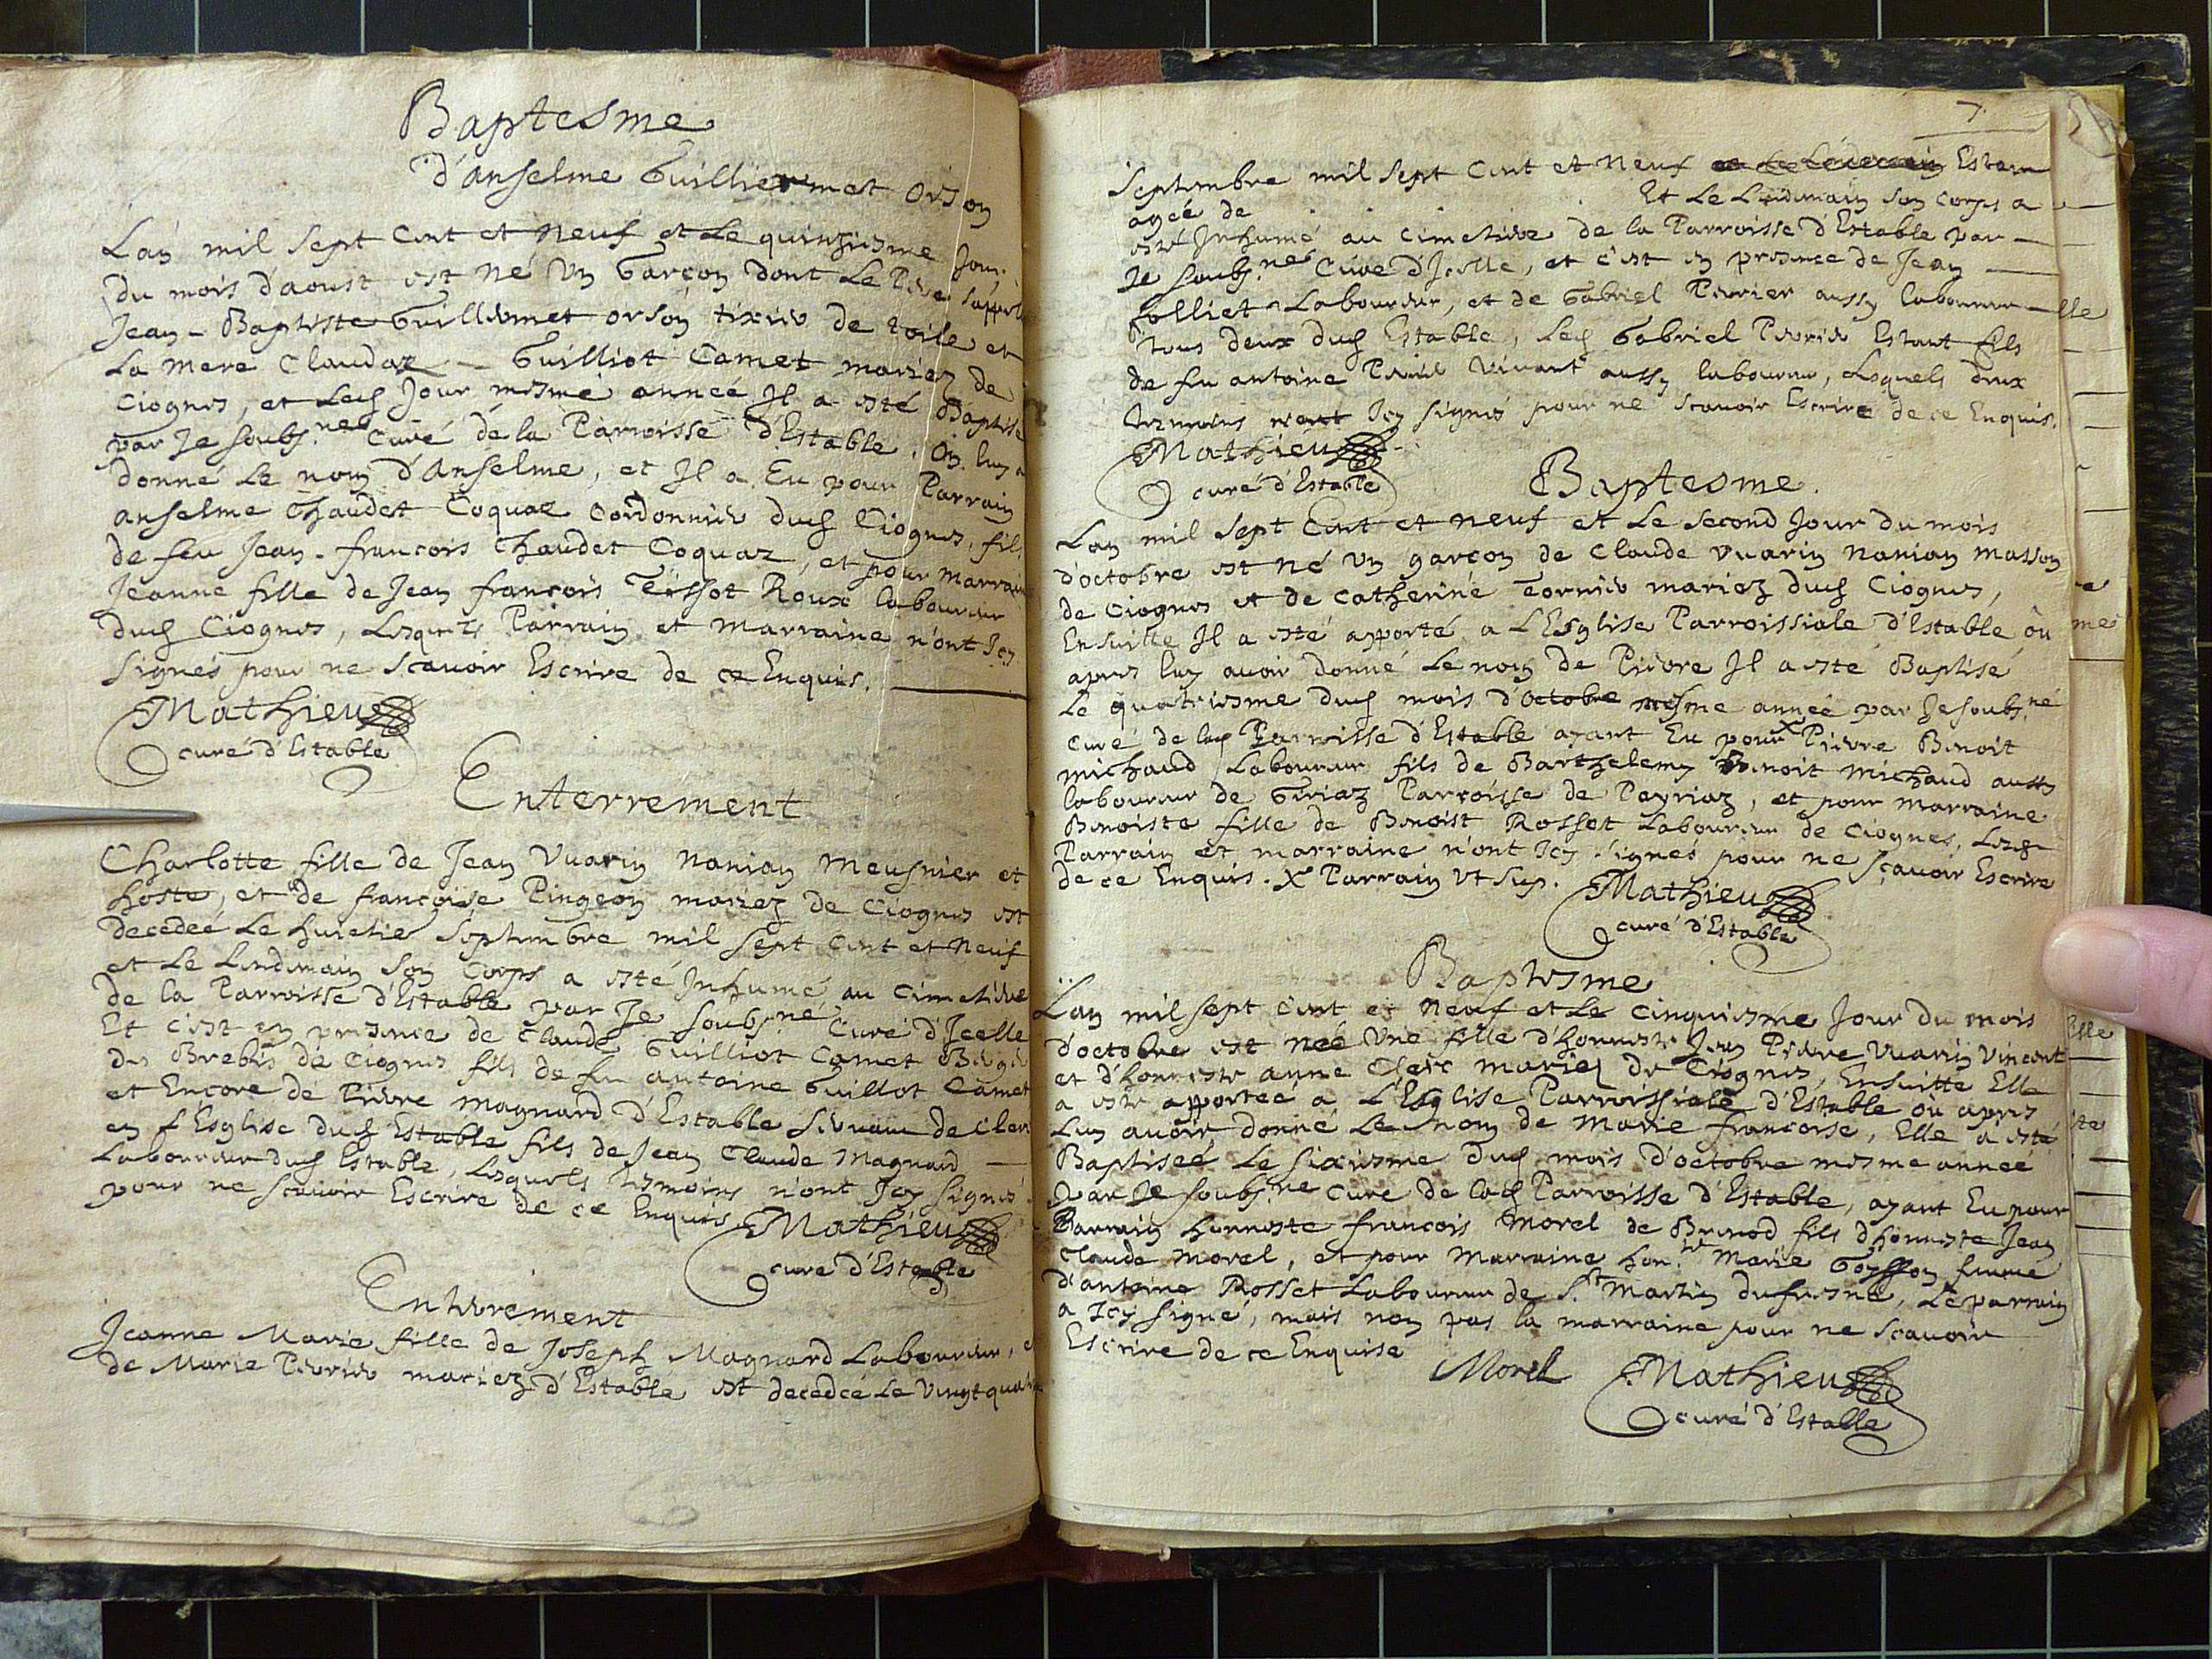 Baptesme
d'anselme Guilliermet Orson
Lan mil sept cent et Neuf et Le quinziesme Jour
du mois d'aoust est né Un Garçon dont Le Pere s'appele
Jean-Baptiste Guilliermet orson tixier de toile et
La mere Claudaz — Guilliot Camet mariez de
Ciognes, et led Jour mesme année Il a esté Baptisé
par Je soubs.né Curé de la Parroisse d'Estable. On luy a
donné Le nom d'Anselme, et Il a Eu pour Parrain
anselme Chaudet Coquaz Cordonnier dud Ciognes, fils
de feu Jean-francois Chaudet Coquaz, et pour marraine
Jeanne fille de Jean francois Tissot Roux laboureur
dud Ciognes, Lesquels Parrain et marraine n'ont Icy
signés pour ne scavoir Escrire de ce Enquis.
Mathieu
curé d'Estable
Enterrement
Charlotte fille de Jean Vuarin Nanian Meusnier et
hoste, et de françoise Pingeon mariez de Ciognes est
decedeé Le huictie Septembre mil sept cent et Neuf
et Le Lendemain son Corps a esté Inhumé au Cimetiere
de la Parroisse d'Estable par Je soubs.né Curé d'Icelle
Et c'est en presence de Claude Guilliot Camet Berger
des Brebis de Ciognes fils de feu antoine Guillot Camet
et Encore de Pierre Magnard d'Estable servant de clerc
en l'Esglise dud Estable fils de Jean Claude Magnard —
Laboureur dud Estable, Lesquels tesmoins n'ont Icy signés
pour ne scavoir Escrire de ce Enquis.
Mathieu
curé d'Estable
Enterrement
Jeanne Marie fille de Joseph Magnard Laboureur, et
de Marie Perrier mariez d'Estable est decedeé Le vingt quatre
7.
Septembre mil sept cent et Neuf et Le Lendemain Estant
ageé de Et Le Lendemain son corps a
esté Inhumé au cimetiere de la Parroisse d'Estable par —
Je soubs.né Curé d'Icelle, et c'est en presence de Jean —
folliet Laboureur, et de Gabriel Perrier aussy laboureur —
tous deux dud Estable, led Gabriel Perrier Estant fils
de feu antoine Perrier Vivant aussy laboureur, Lesquels deux
tesmoins n'ont Icy signés pour ne scavoir Escrire de ce Enquis.
Mathieu
curé d'Estable
Baptesme.
Lan mil sept cent et neuf et Le second Jour du mois
d'octobre est Né Un garçon de Claude vuarin nanian masson
de Ciognes et de Catherine Tornier mariez dud Ciognes,
Ensuitte Il a esté apporté a L'Esglise Parroissiale d'Estable où
apres luy avoir donné Le nom de Pierre Il a esté Baptisé
Le quatriesme dud mois d'octobre mesme anneé par Je soubs.né
Curé de lad Parroisse d'Estable ayant Eu pour X Pierre Benoit
michaud Laboureur fils de Barthelemy Benoit Michaud aussy
laboureur de Giriaz Parroisse de Peyriaz, et pour marraine
Benoiste fille de Benoist Rosset Laboureur de Ciognes, Lesd
Parrain et marraine n'ont Icy signés pour ne sçavoir Escrire
de ce Enquis. X Parrain Vt sup.
Mathieu
curé d'Estable
Baptesme
Lan mil sept cent et Neuf et Le cinquiesme Jour du mois
d'octobre est née Une fille d'honneste Jean Pierre Vuarin Vincent
et d'honneste anne Clerc mariez de Ciognes, Ensuitte Elle
a esté apportée a L'Esglise Parroissiale d'Estable où apres
Luy avoir donné Le nom de Marie francoise, Elle a esté
Baptisée Le sixiesme dud mois d'octobre mesme anneé
par Je soubs.né Curé de lad Parroisse d'Estable, ayant Eu pour
Parrain honneste francois Morel de Brenod fils d'honneste Jean
Claude Morel, et pour Marraine hon.te Marie Goysson femme
d'antoine Rosset Laboureur de S.t Martin du fresne, Le parrain
a Icy signé, mais non pas la marraine pour ne scavoir
Escrire de ce Enquise
Morel
Mathieu
curé d'Estable